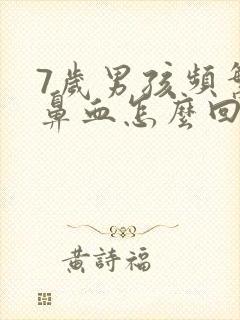 7歲男孩頻
鼻血怎麼回
黃詩福